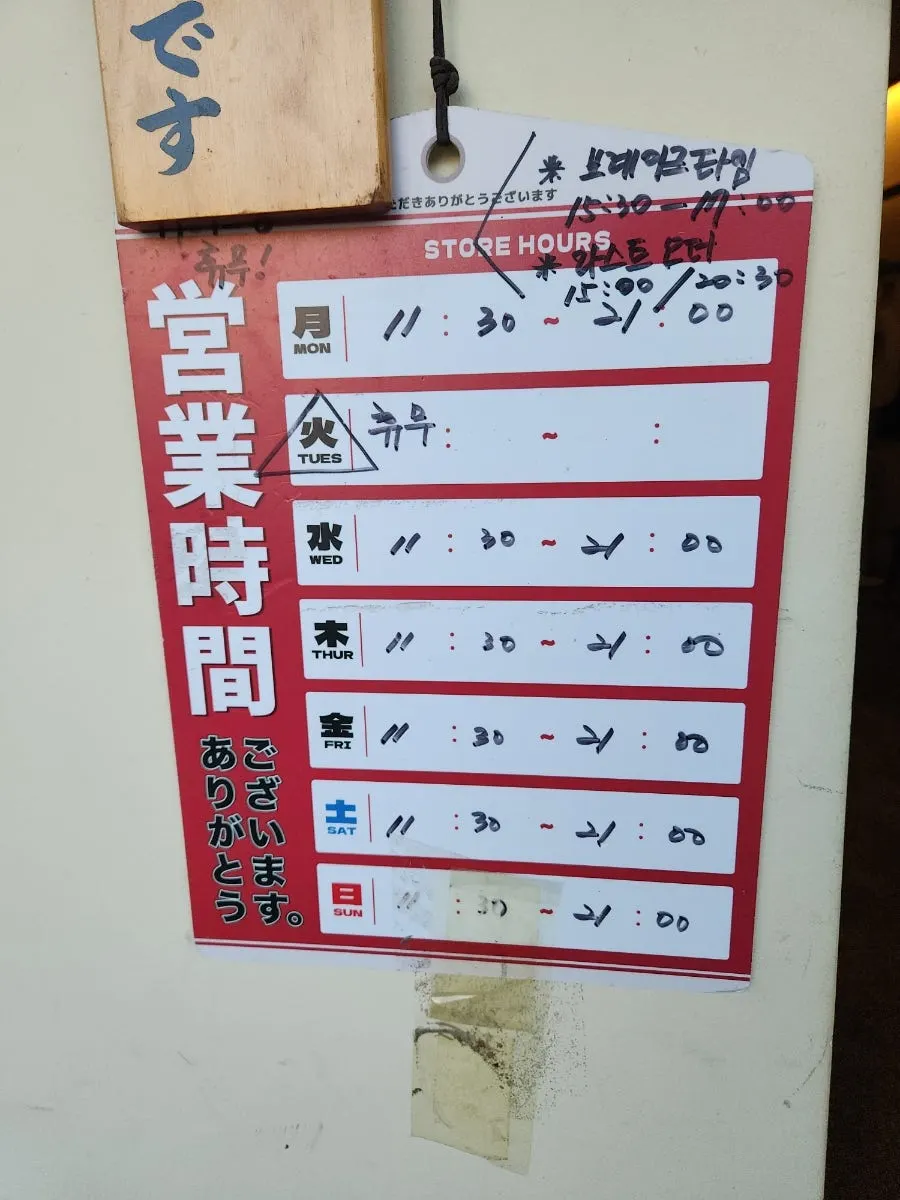 です
ただきありがとうございます
* 브레이크타임
15:30 — 17:00
* 라스트 오더
15:00 / 20:30
휴무!
STORE HOURS
営業時間
ありがとう
ございます。
月 MON 11 : 30 ~ 21 : 00
火 TUES 휴무 : ~ :
水 WED 11 : 30 ~ 21 : 00
木 THUR 11 : 30 ~ 21 : 00
金 FRI 11 : 30 ~ 21 : 00
土 SAT 11 : 30 ~ 21 : 00
日 SUN 11 : 30 ~ 21 : 00